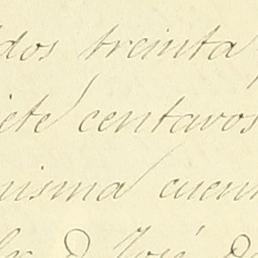 dos treinta
iete centavos
misma cuen
D. José